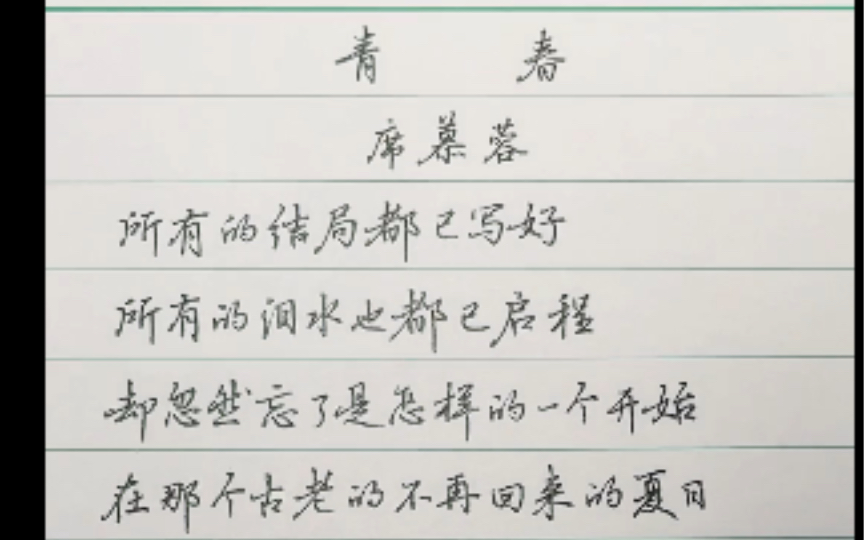 青春
席慕蓉
所有的结局都已写好
所有的泪水也都已启程
却忽然忘了是怎样的一个开始
在那个古老的不再回来的夏日